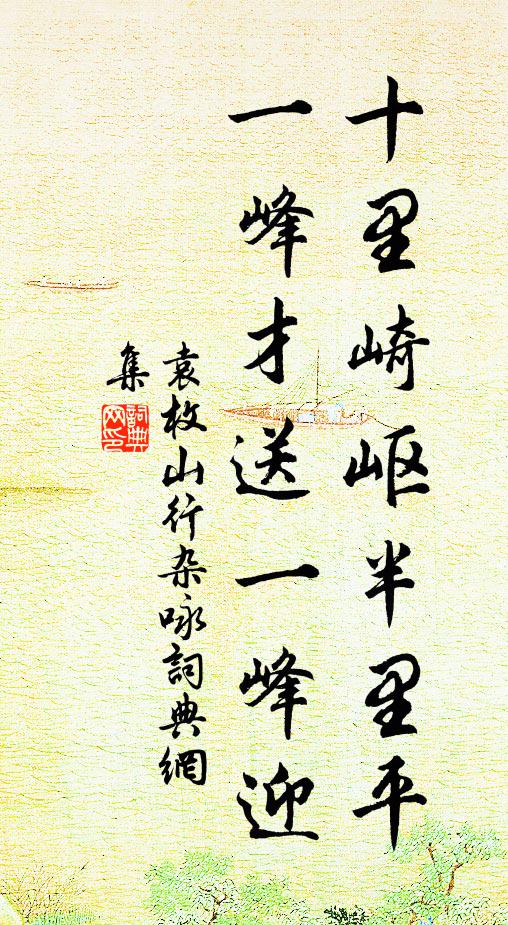 十里崎岖半里平
一峰才送一峰迎
袁枚山行杂咏詞典網
集
詞典
网印